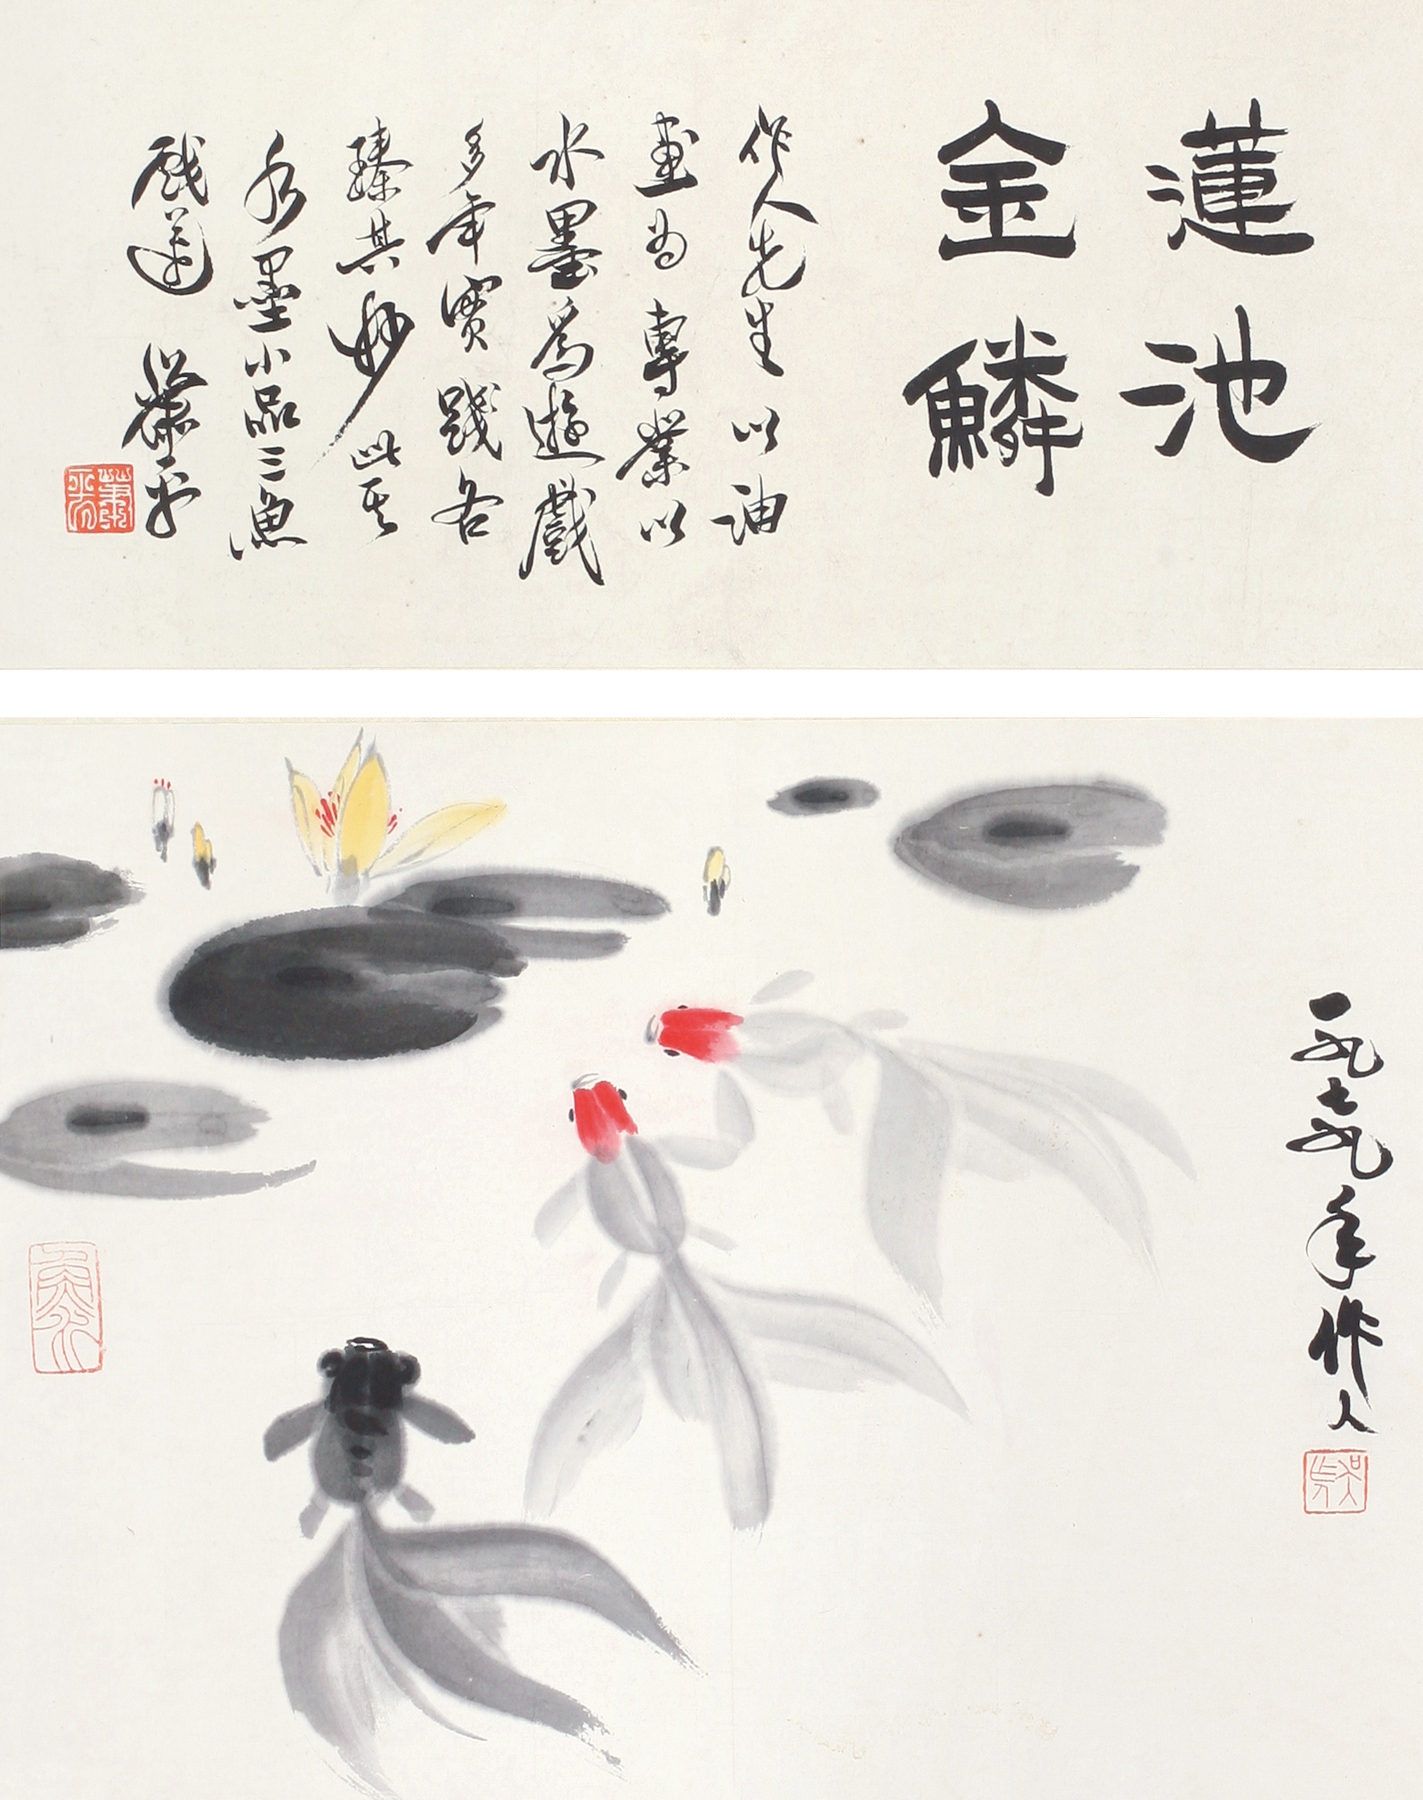 蓮池
金鱗
作人先生以油
畫为專業以
水墨爲遊戲
多年實踐各
臻其妙此其
水墨小品三魚
戲蓮 蕭平
蕭平
一九七九年作人